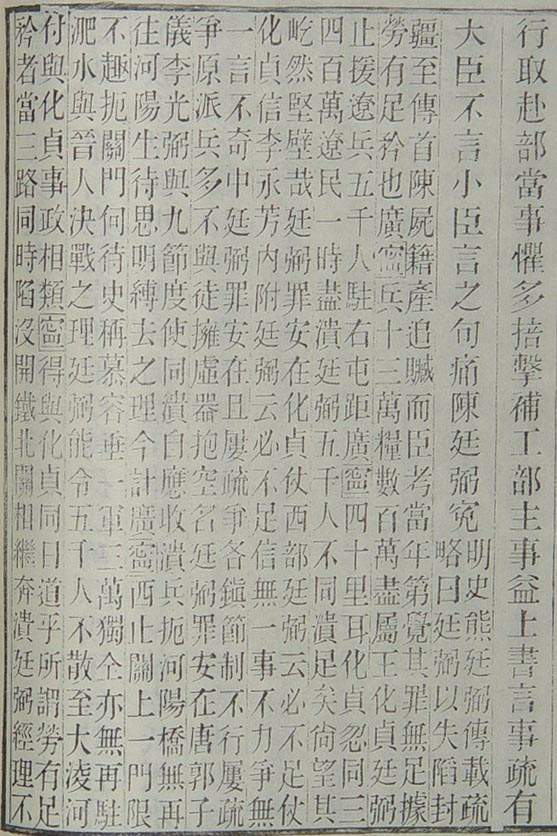 行取赴部當事懼多掊擊補工部主事益上書言事疏有
大臣不言小臣言之句痛陳廷弼寃
明史熊廷弼傳載疏
略曰廷弼以失陷封
疆至傳首陳屍籍產追贓而臣考當年第覺其罪無足據
勞有足矜也廣寗兵十三萬糧數百萬盡屬王化貞廷弼
止援遼兵五千人駐右屯距廣寗四十里耳化貞忽同三
四百萬遼民一時盡潰廷弼五千人不同潰足矣尚望其
屹然堅壁哉廷弼罪安在化貞仗西部廷弼云必不足仗
化貞信李永芳內附廷弼云必不足信無一事不力爭無
一言不奇中廷弼罪安在且屢疏爭各鎭節制不行屢疏
爭原派兵多不與徒擁虛器抱空名廷弼罪安在唐郭子
儀李光弼與九節度使同潰自應收潰兵扼河陽橋無再
往河陽生待思明縛去之理今計廣寗西止關上一門限
不趣扼關門何待史稱慕容垂一軍三萬獨仝亦無再駐
淝水與晉人決戰之理廷弼能令五千人不散至大淩河
付與化貞事政相類寗得與化貞同日道乎所謂勞有足
矜者當三路同時陷沒開鐵北關相繼奔潰廷弼經理不